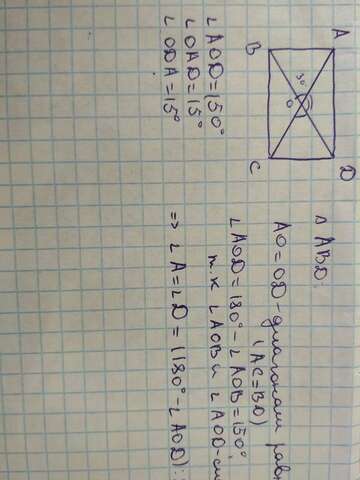 A
B
30°
O
C
D
∠AOD = 150°
∠OAD = 15°
∠ODA = 15°
Δ ABD:
AO = OD - диагонали
(AC = BD)
∠AOD = 180° - ∠AOB = 150°,
т.к ∠AOB и ∠AOD -
=> ∠A = ∠D = (180° - ∠AOD) :